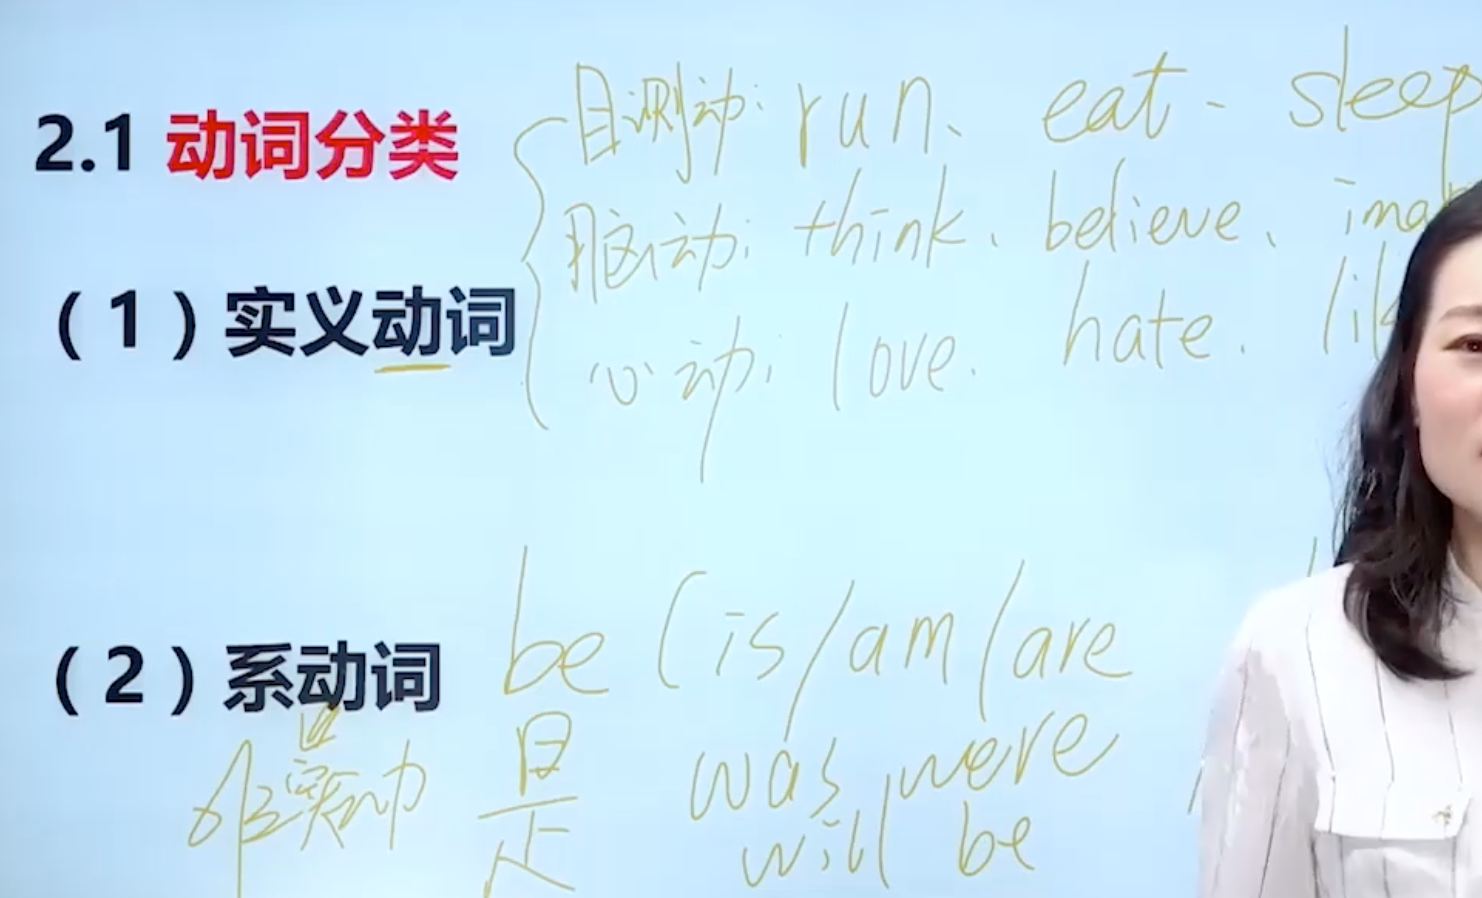 2.1 动词分类
目测动: run、 eat - sleep
脑动: think、 believe、 ima
（1）实义动词
心动: love. hate. lik
（2）系动词 be (is/am/are
是 was were
will be